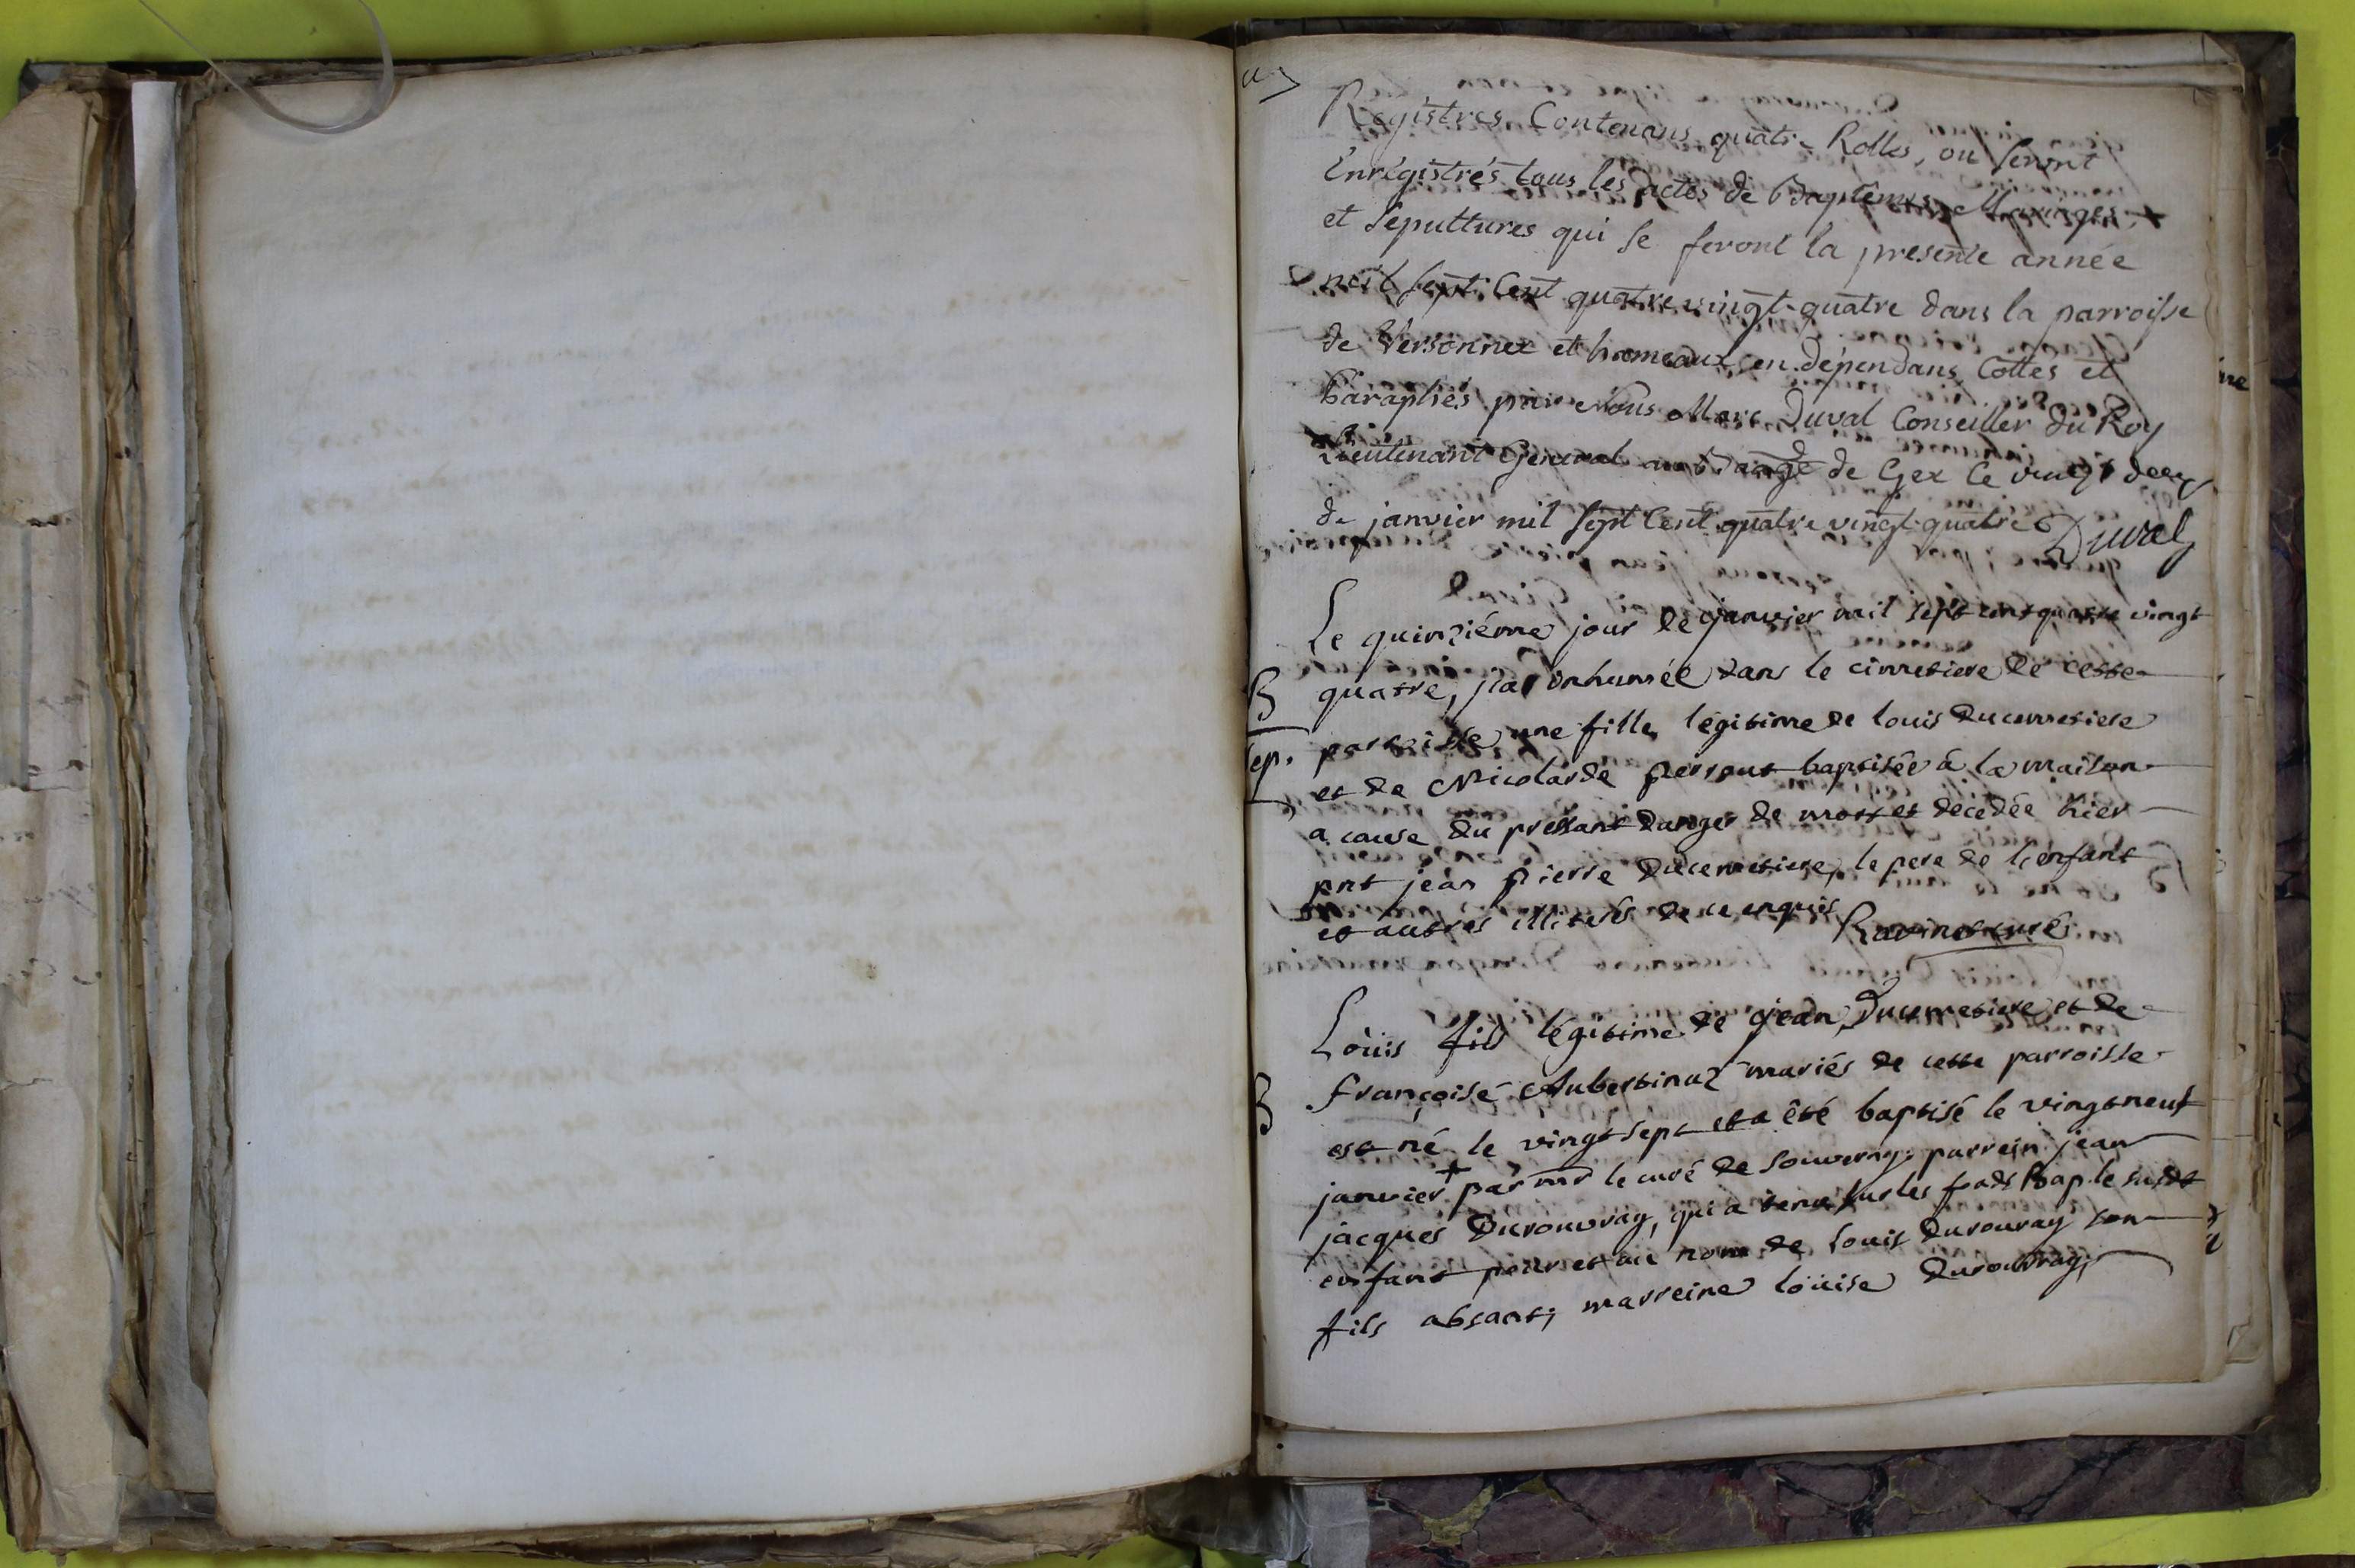 Registres Contenans quatre Rolles, ou seront
Enrégistrés tous les actes de Baptêmes, Mariages
et sépultures qui se feront la presente année
mil sept Cent quatre vingt-quatre dans la parroisse
de Versonnex et hameaux en dépendans Cottés et
Paraphés par Nous Marc Duval Conseiller du Roy
Lieutenant General au de Gex le vingt deux
de janvier mil sept Cent quatre vingt-quatre Duval
Le quinziéme jour de janvier mil sept cent quatre vingt
B quatre, j'ai inhumée dans le cimetiere de cette
sep. parroisse une fille légitime de louis Ducimetiere
et de Nicolarde perrout baptisée à la maison
a cause du pressant danger de mort et decedée hier
pnt jean pierre Ducimetiere, le pere de l'enfant
et autres illiterés de ce enquis Ravinet curé
Loüis fils légitime de jean Ducimetiere et de
françoise Aubertinaz mariés de cette parroisse
B est né le vingt sept et a été baptisé le vingt neuf
janvier + par mr le curé de Souverny. parrein jean
jacques Durouvray, qui a tenu sur les fonds Bap. le susdt
enfant pour et au nom de Louis Durouvray son
fils absant; marreine loüise Durouvray,